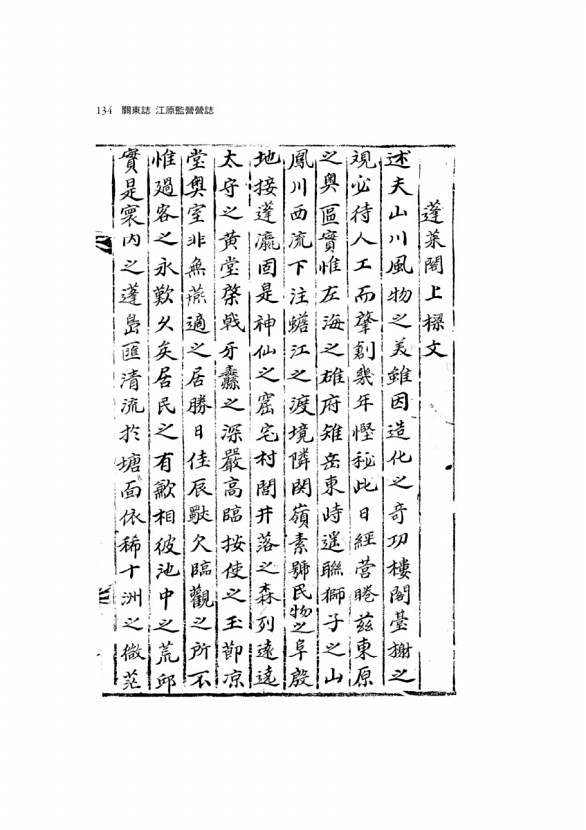 134 關東誌 江原監營營誌
蓬萊閣上樑文
述夫山川風物之美雖因造化之奇功樓閣臺榭之
現必待人工而肇創幾年慳秘此日經營睠茲東原
之奥區實惟左海之雄府雉岳東峙遥聯獅子之山
鳳川西流下注蟾江之渡境隣関嶺素號民物之阜殷
地接蓬瀛固是神仙之窟宅村閭井落之森列遠遠
太守之黄堂棨戟牙纛之深嚴高臨按使之玉節凉
堂奥室非無燕適之居勝日佳辰歇欠臨觀之所不
惟過客之永歎久矣居民之有歉相彼池中之荒邱
實是寰内之蓬島匯清流於塘面依稀十洲之微茫